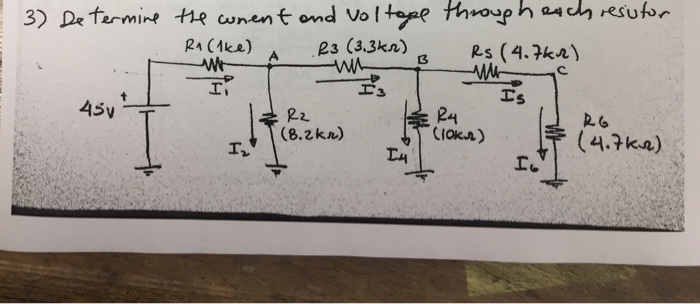 3) Determine the current and Voltage through each resistor
R1 (1kΩ) A R3 (3.3kΩ) B R5 (4.7kΩ)
C
I1 I3 I5
45V + R2 R4 R6
(8.2kΩ) (10kΩ) (4.7kΩ)
I2 I4 I6